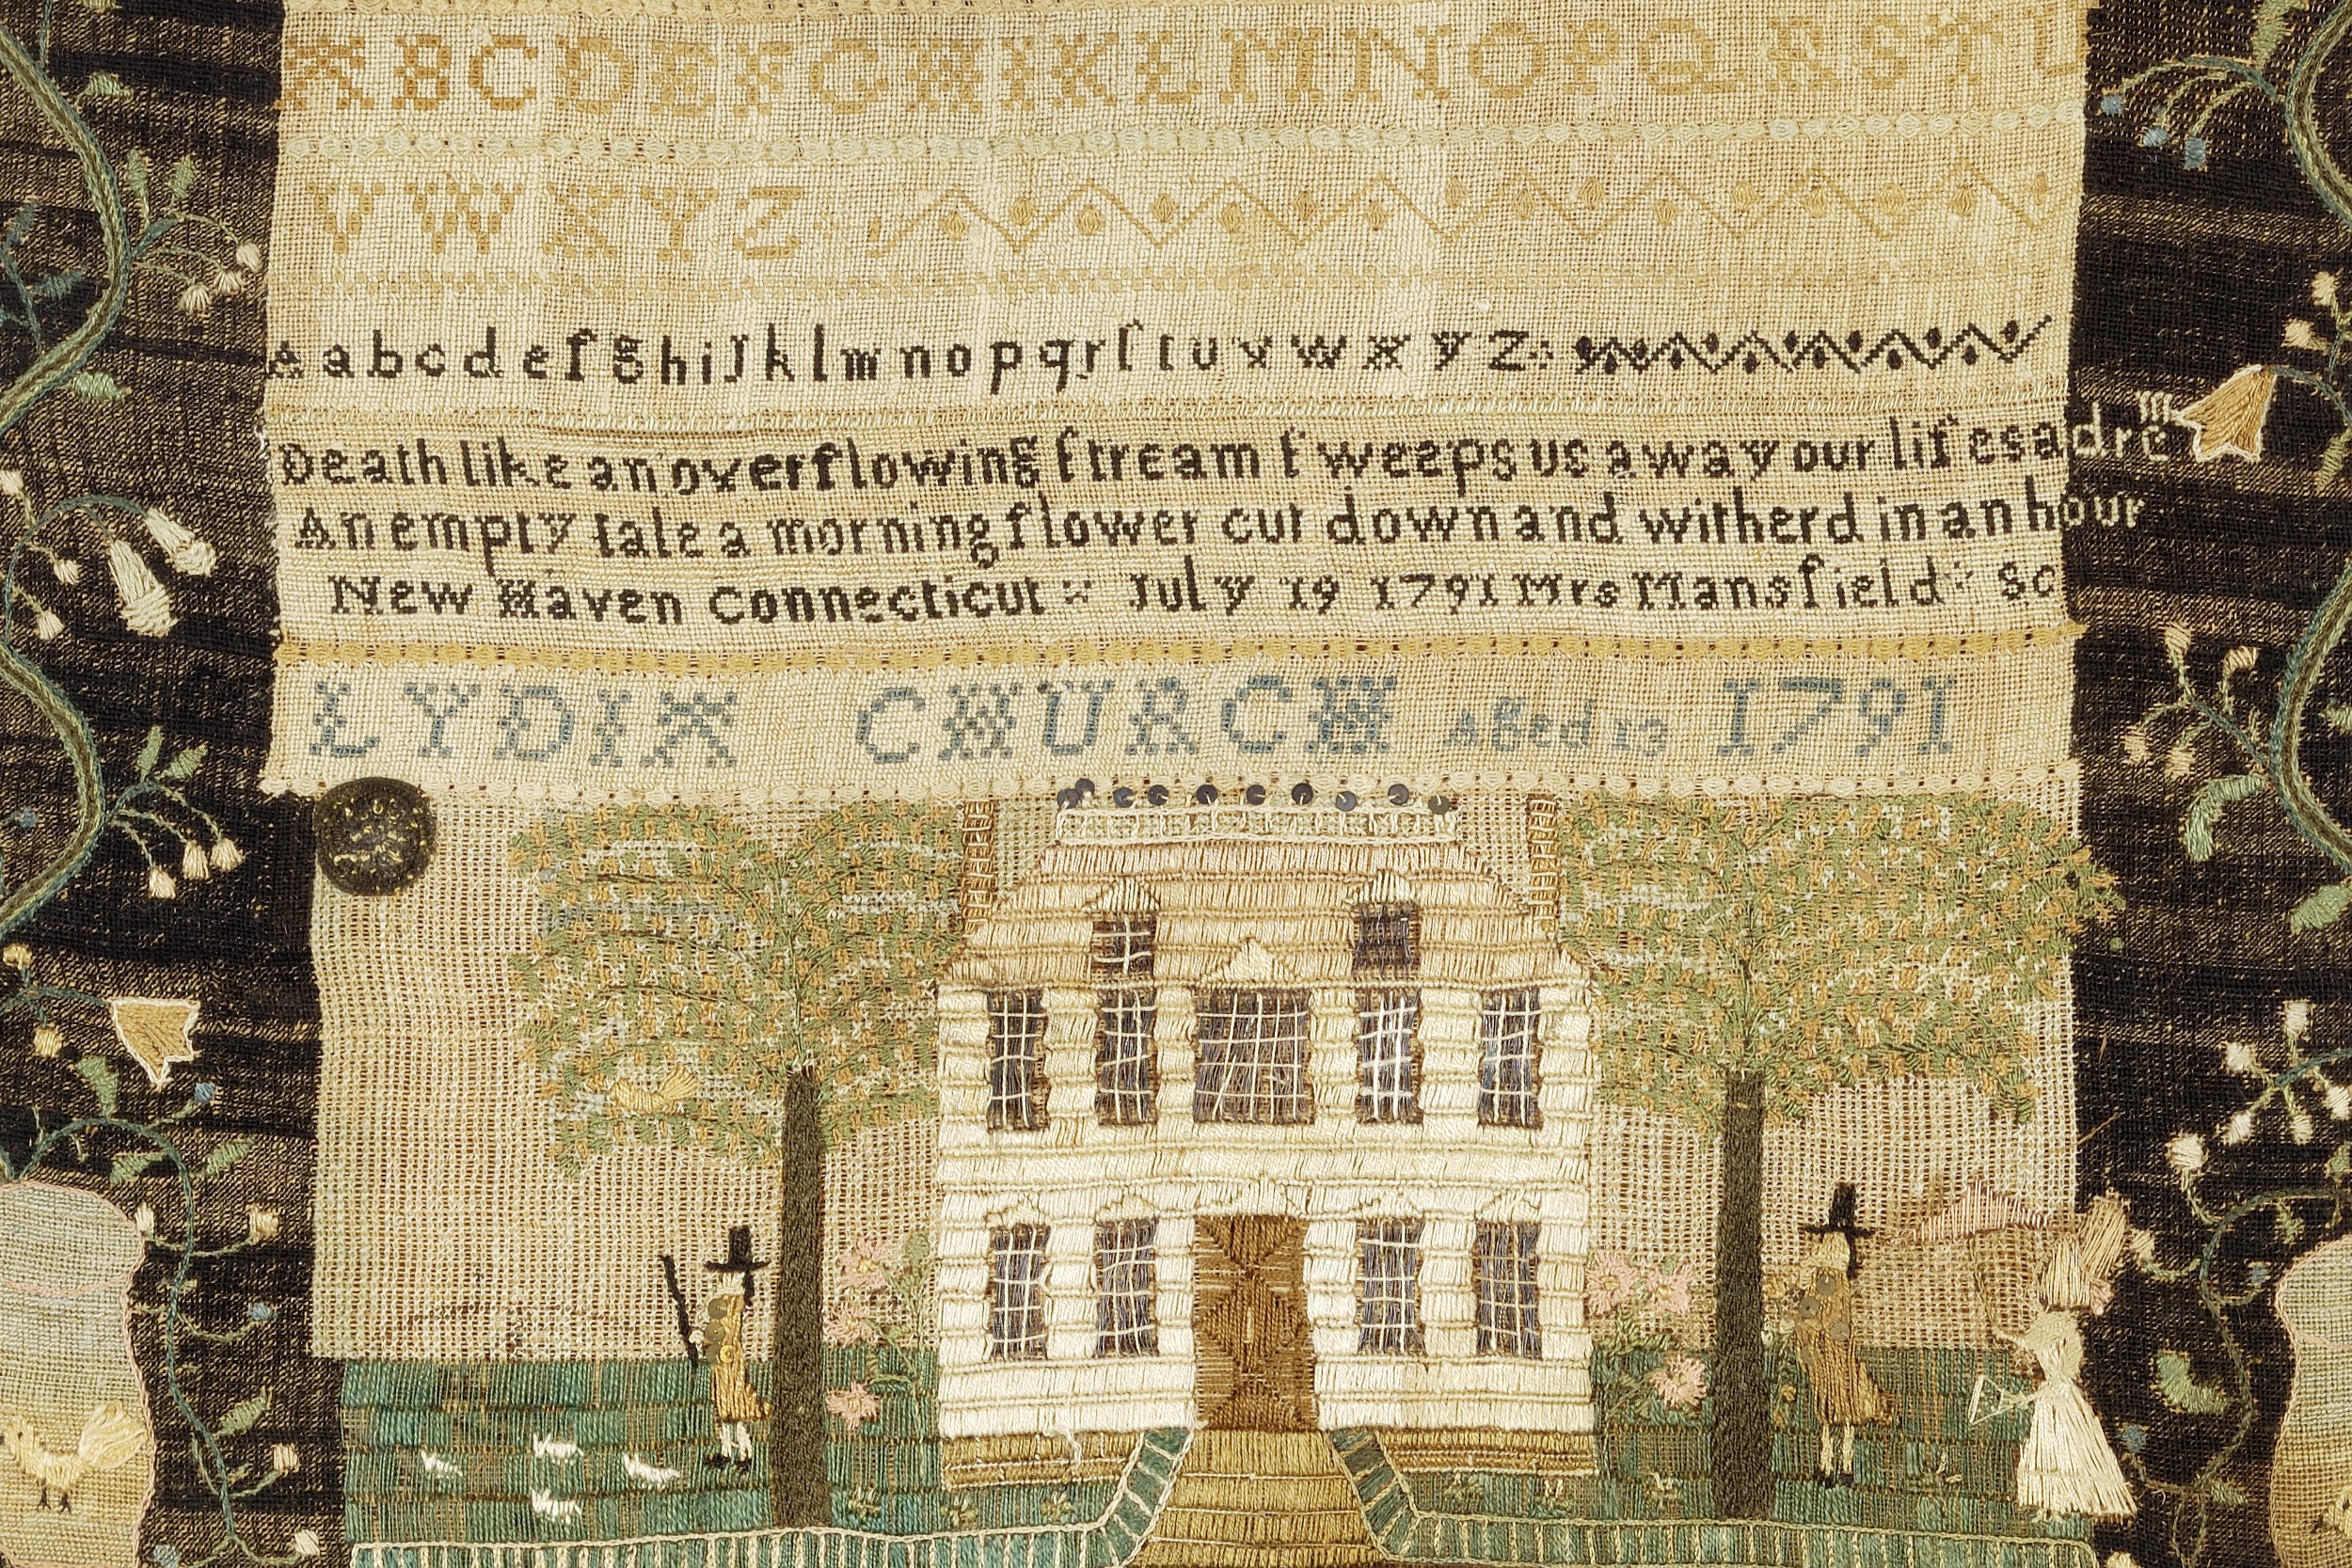 ABCDEFGHIKLMNOPQRSTU
VWXYZ
Aabcdefghijklmnopqrſstuvwxyz
Death like an overflowing ſtream ſweeps us away our lifes a dream
An empty tale a morning flower cut down and witherd in an hour
New Haven Connecticut July 19 1791 Mrs Mansfield Sc
LYDIA CHURCH Aged 13 1791